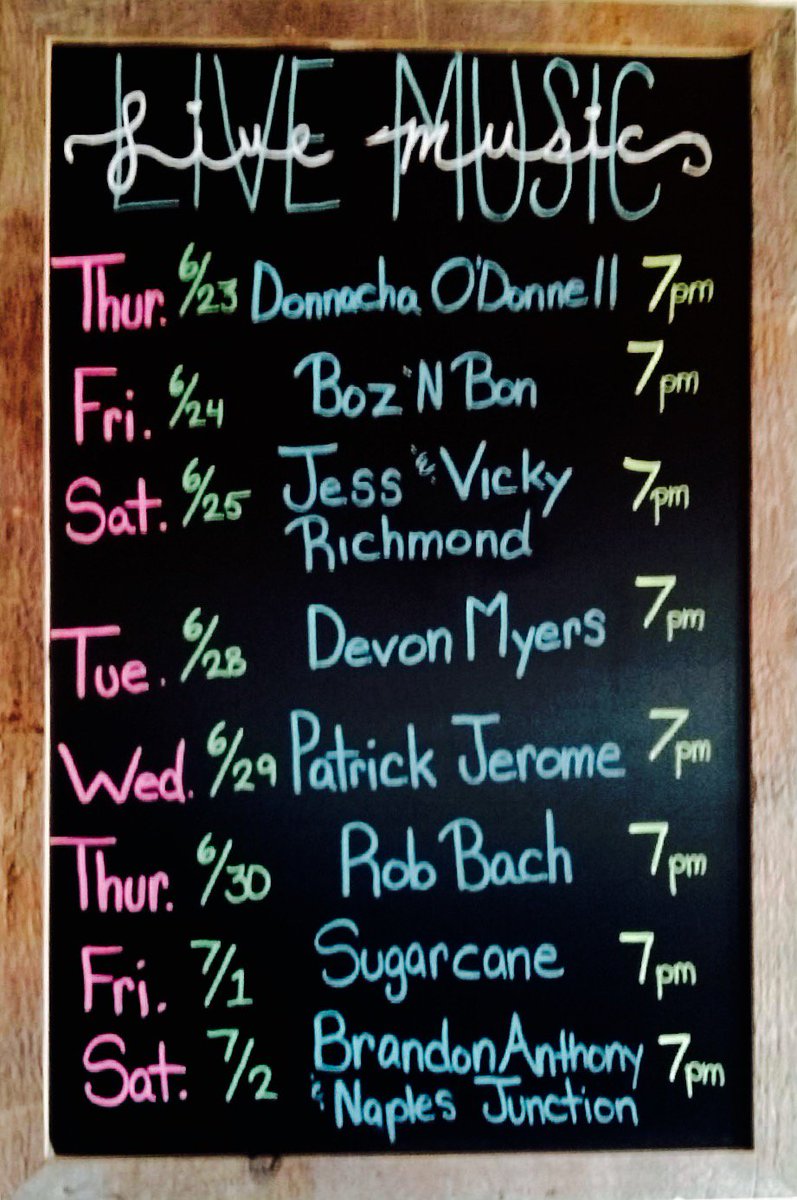 LIVE MUSIC
Live music
Thur. 6/23 Donnacha O'Donnell 7pm
Fri. 6/24 Boz 'N Bon 7pm
Sat. 6/25 Jess & Vicky 7pm
Richmond
Tue. 6/28 Devon Myers 7pm
Wed. 6/29 Patrick Jerome 7pm
Thur. 6/30 Rob Bach 7pm
Fri. 7/1 Sugarcane 7pm
Sat. 7/2 Brandon Anthony 7pm
& Naples Junction